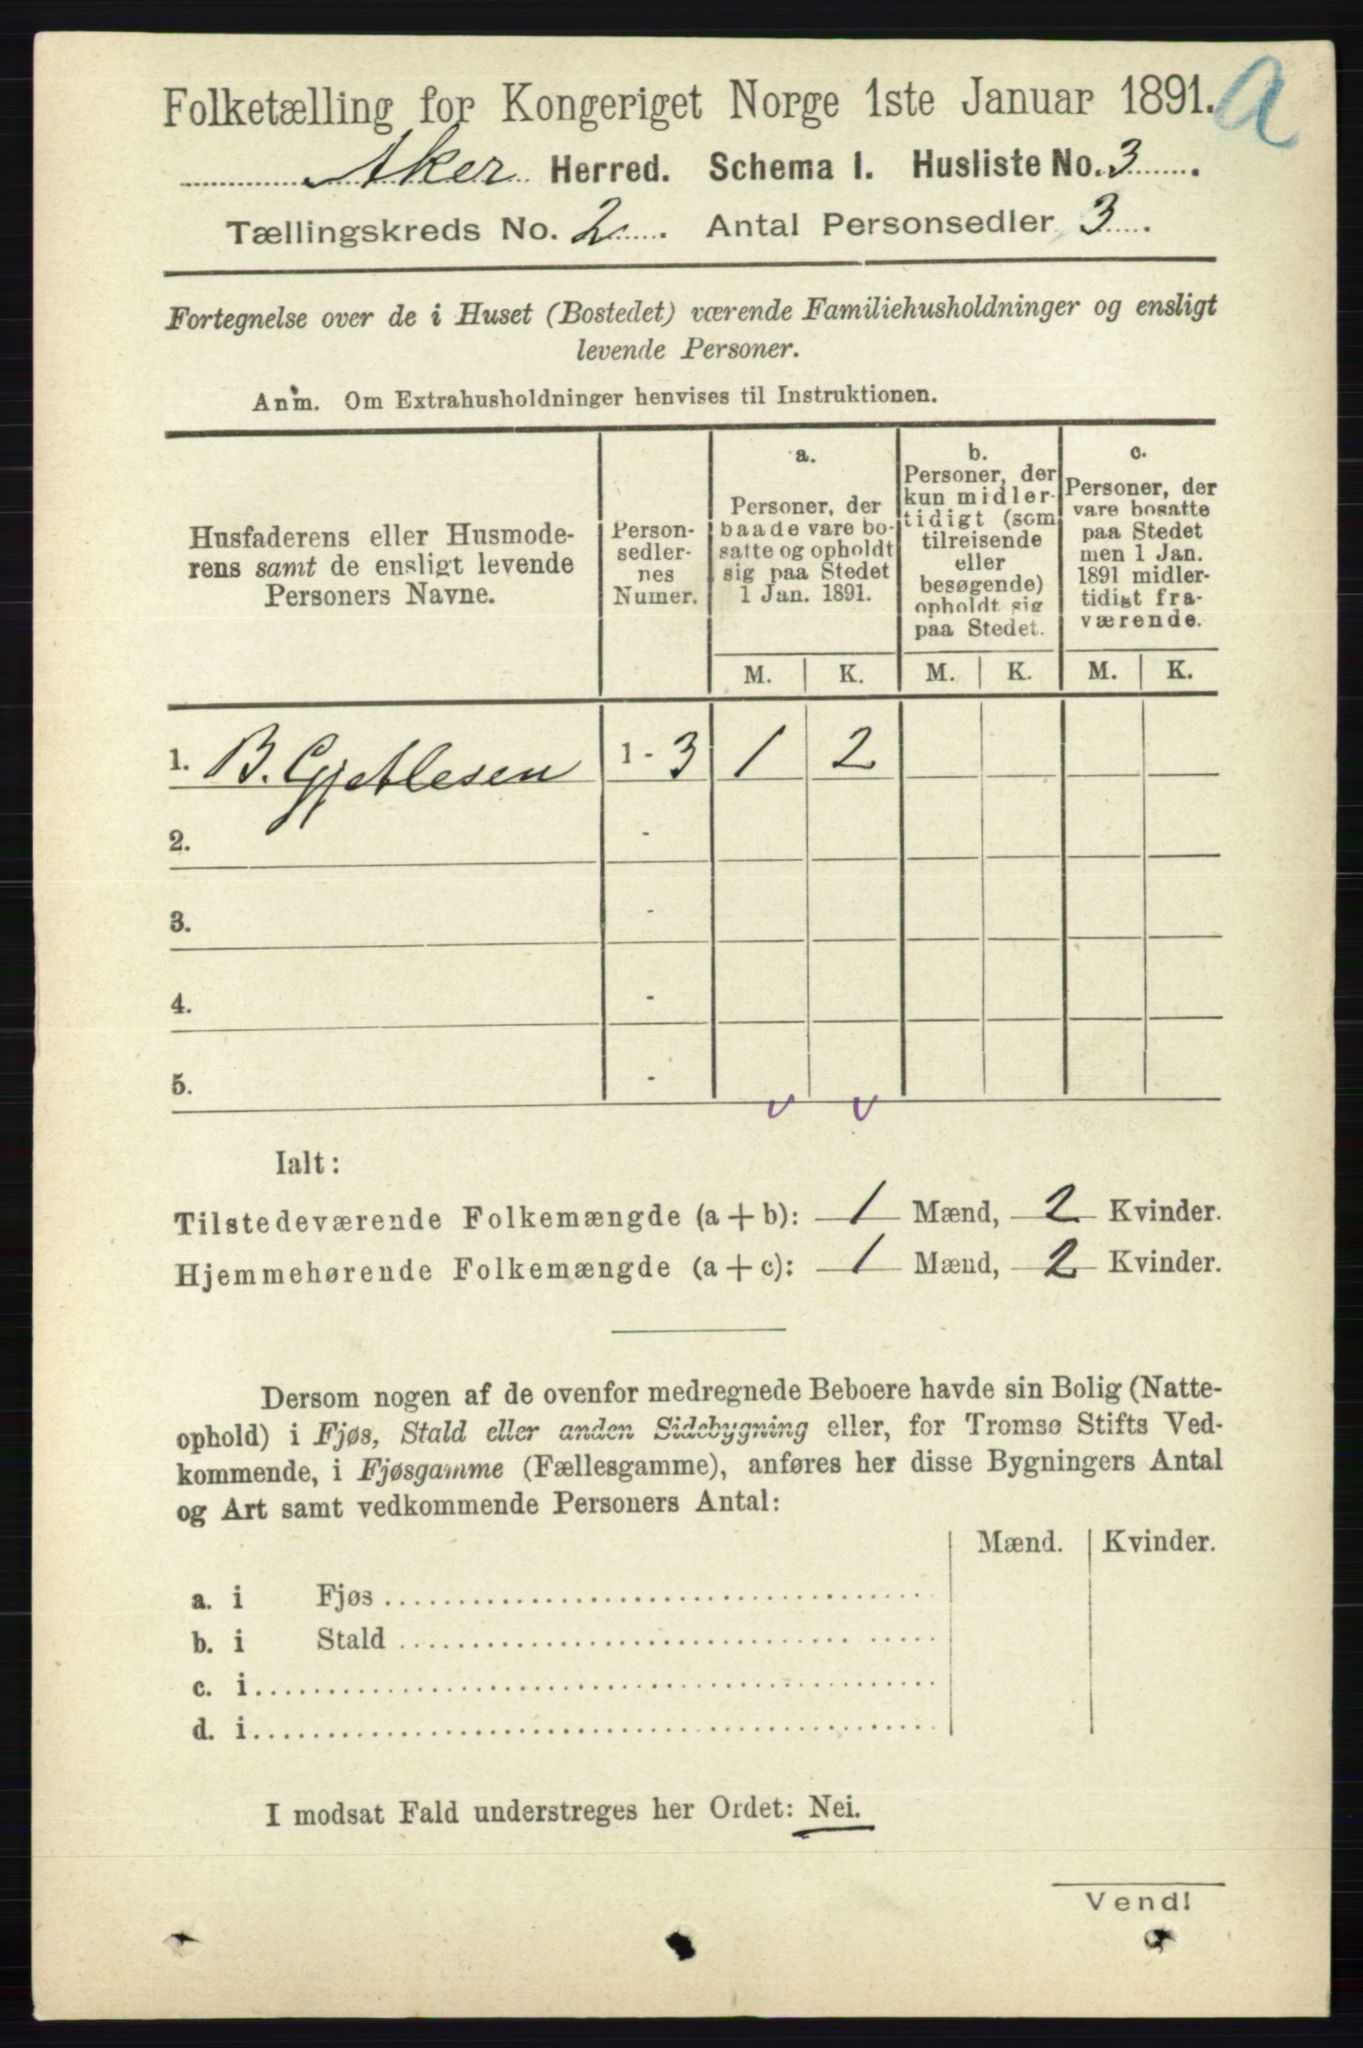 Folketælling for Kongeriget Norge 1ste Januar 1891. a
Aker Herred. Schema 1. Husliste No. 3
Tællingskreds No. 2. Antal Personsedler 3.
Fortegnelse over de i Huset (Bostedet) værende Familiehusholdninger og ensligt
levende Personer.
Anm. Om Extrahusholdninger henvises til Instruktionen.
Husfaderens eller Husmode-
rens samt de ensligt levende
Personers Navne.
Person-
sedler-
nes
Numer.
a.
Personer, der
baade vare bo-
satte og opholdt
sig paa Stedet
1 Jan. 1891.
b.
Personer, der
kun midler-
tidigt (som
tilreisende
eller
besøgende)
opholdt sig
paa Stedet.
c.
Personer, der
vare bosatte
paa Stedet
men 1 Jan.
1891 midler-
tidigt fra-
værende.
M. K. M. K. M. K.
1. B. Gjetlesen 1 - 3 1 2
2. -
3. -
4. -
5. -
Ialt:
Tilstedeværende Folkemængde (a + b): 1 Mænd, 2 Kvinder.
Hjemmehørende Folkemængde (a + c): 1 Mænd, 2 Kvinder.
Dersom nogen af de ovenfor medregnede Beboere havde sin Bolig (Natte-
ophold) i Fjøs, Stald eller anden Sidebygning eller, for Tromsø Stifts Ved-
kommende, i Fjøsgamme (Fællesgamme), anføres her disse Bygningers Antal
og Art samt vedkommende Personers Antal:
Mænd. Kvinder.
a. i Fjøs
b. i Stald
c. i
d. i
I modsat Fald understreges her Ordet: Nei.
Vend!